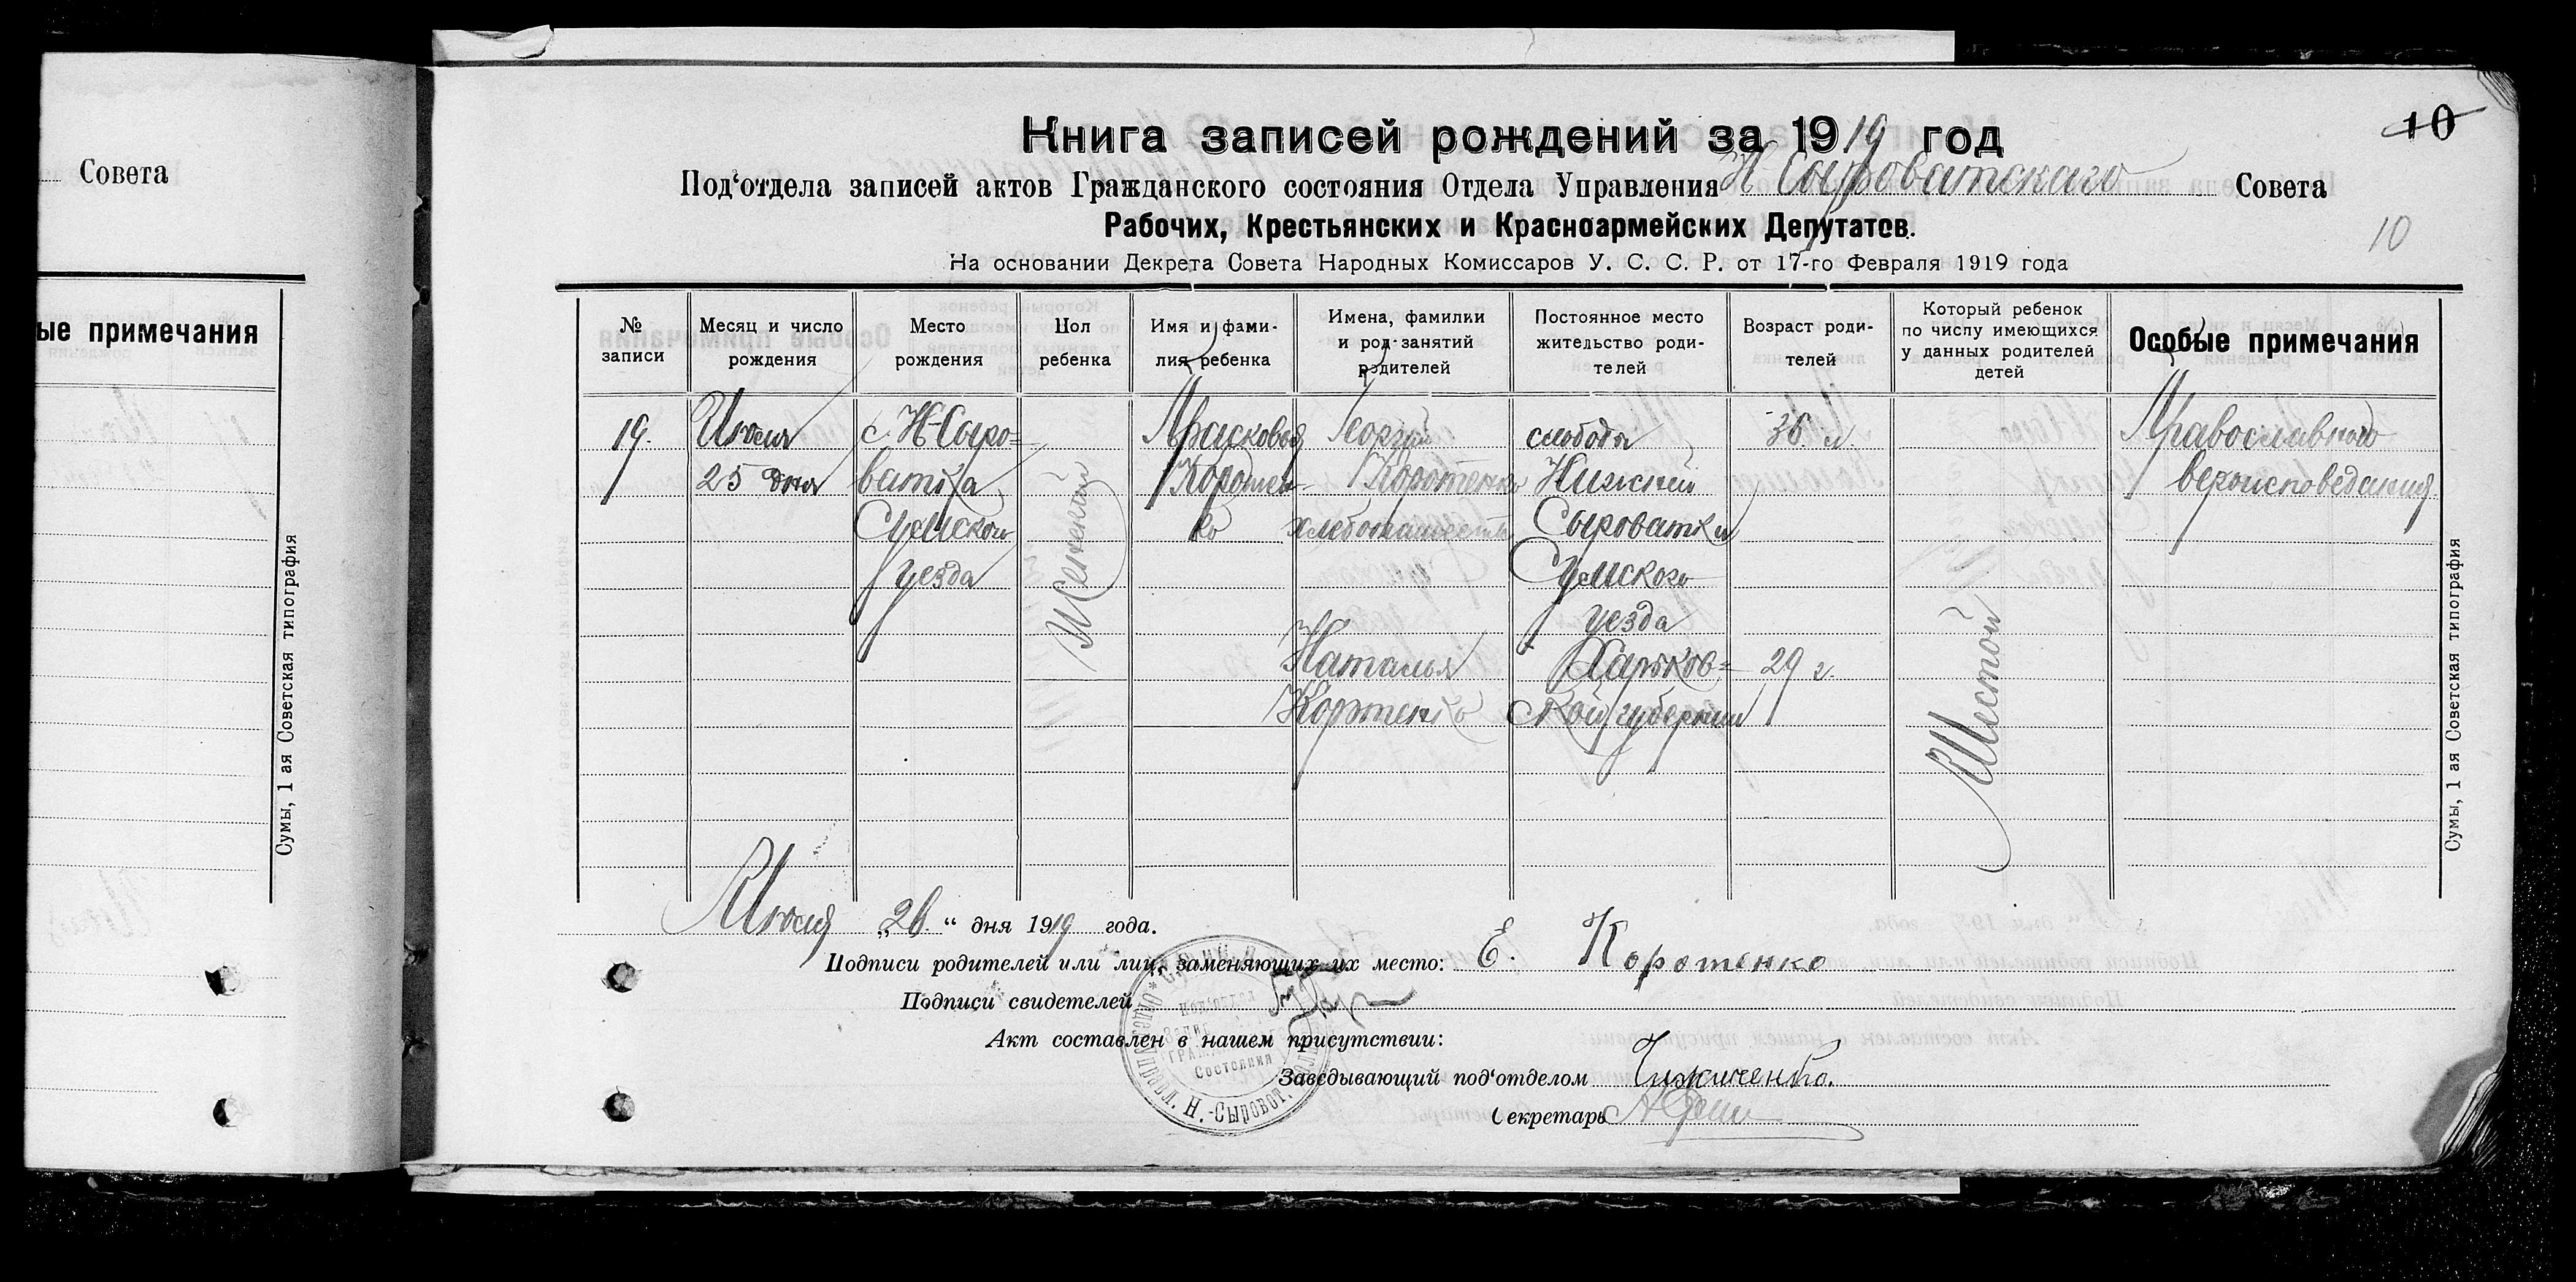 Совета
ые примечания
Сумы, 1 ая Советская типография
10
Книга записей рождений за 1919 год
Под‘отдела записей актов Гражданского состояния Отдела Управления Н Сыроватскаго Совета
Рабочих, Крестьянских и Красноармейских Депутатов.
10
На основании Декрета Совета Народных Комиссаров У. С. С. Р. от 17-го Февраля 1919 года
№ записи
Месяц и число рождения
Место рождения
Пол ребенка
Имя и фами-
лия ребенка
Имена, фамилии
и род занятий
родителей
Постоянное место
жительство роди-
телей
Возраст роди-
телей
Который ребенок
по числу имеющихся
у данных родителей
детей
Особые примечания
19.
Июля
25 дня
с. Н-Сыро=
ватка
Сумского
уезда
Женский
Прасковья
Коротен-
ко
Георгий
Коротенко
хлебопашество
Наталья
Коротенко
слободы
Нижней
Сыроватки
Сумского
уезда
Харьков=
ской губернии
36 л.
29 г.
Шестой
Православного
вероисповедания
Сумы, 1 ая Советская типография
Июля „26.“ дня 1919 года.
Подписи родителей или лиц, заменяющих их место: Е. Коротенко
Подписи свидетелей
Акт составлен в нашем присутствии:
Заведывающий под‘отделом Чижиченко.
Секретарь
Под‘отдел
Запис
Гражданского
Состояния
Н.-Сыроват.